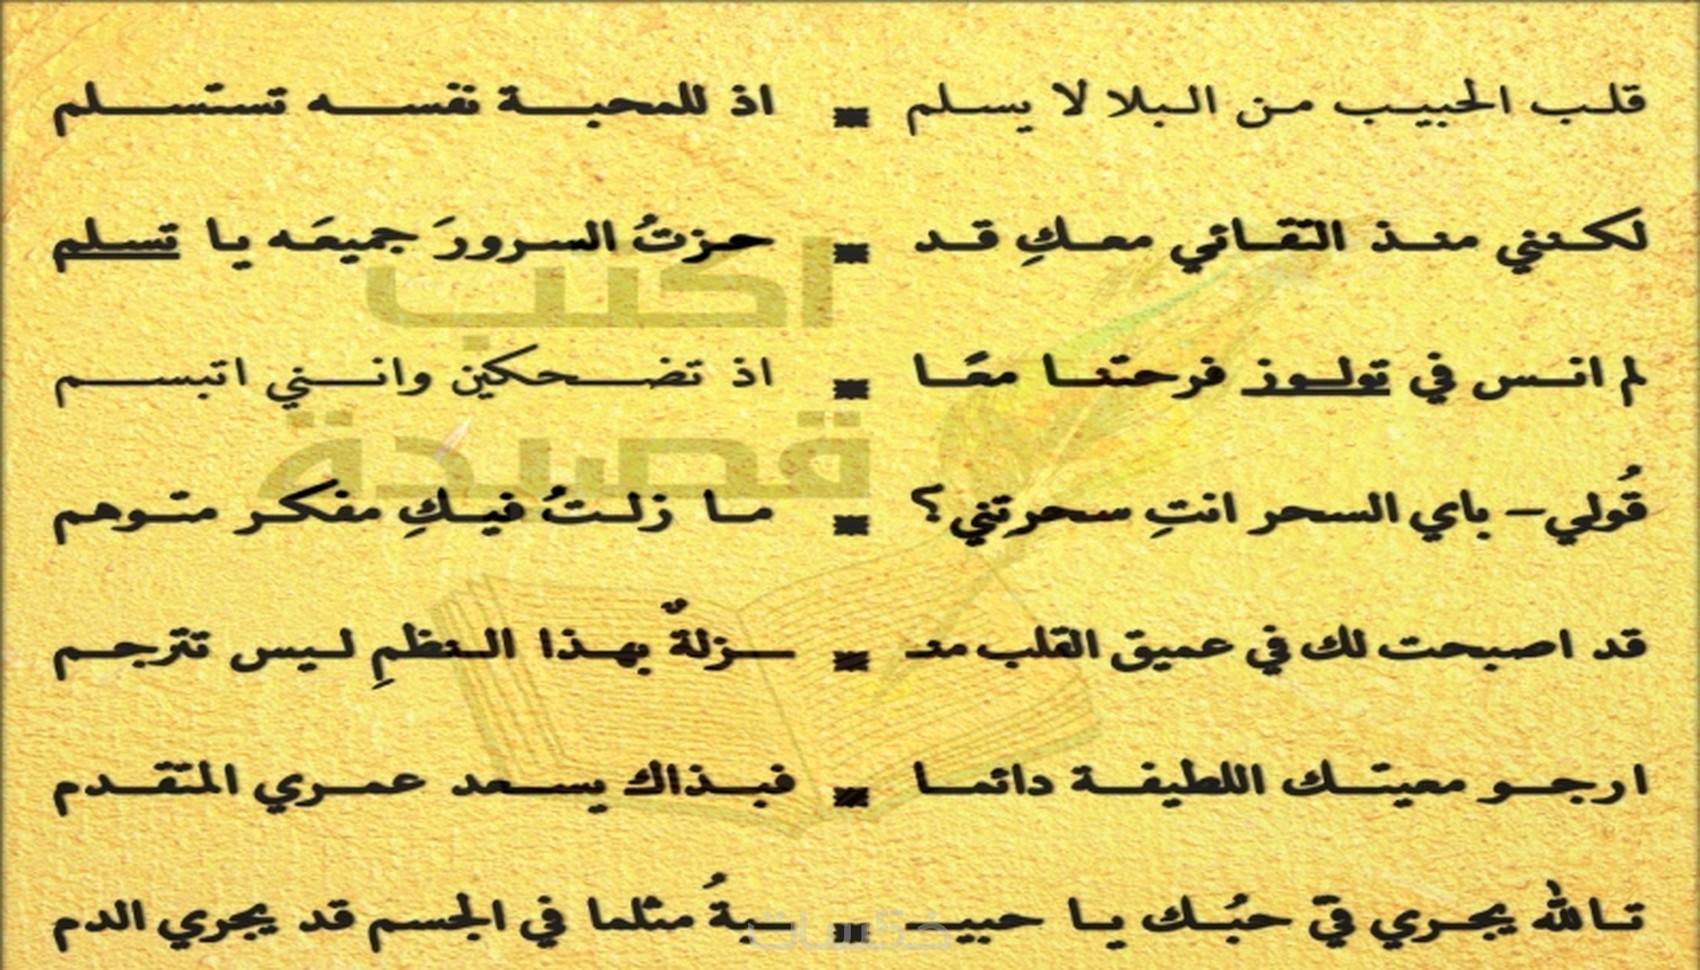 قلب الحبيب من البلا لا يسلم ـ اذ للمحبة نفسه تستسلم
لكنني منذ التقائي معكِ قد ـ حزتُ السرورَ جميعَه يا تسلم
اكتب
لم انس في تولوز فرحتنا معًا ـ اذ تضحكين وانني اتبسم
قصيدة
قُولي– باي السحر انتِ سحرتني؟ ـ ما زلتُ فيكِ مفكر متوهم
قد اصبحت لك في عميق القلب منـ ـ ـزلةٌ بهذا النظمِ ليس تترجم
ارجو معيتك اللطيفة دائما ـ فبذاك يسعد عمري المتقدم
تالله يجري فيّ حبُك يا حبيـ ـ ـبةُ مثلما في الجسم قد يجري الدم
خمسات